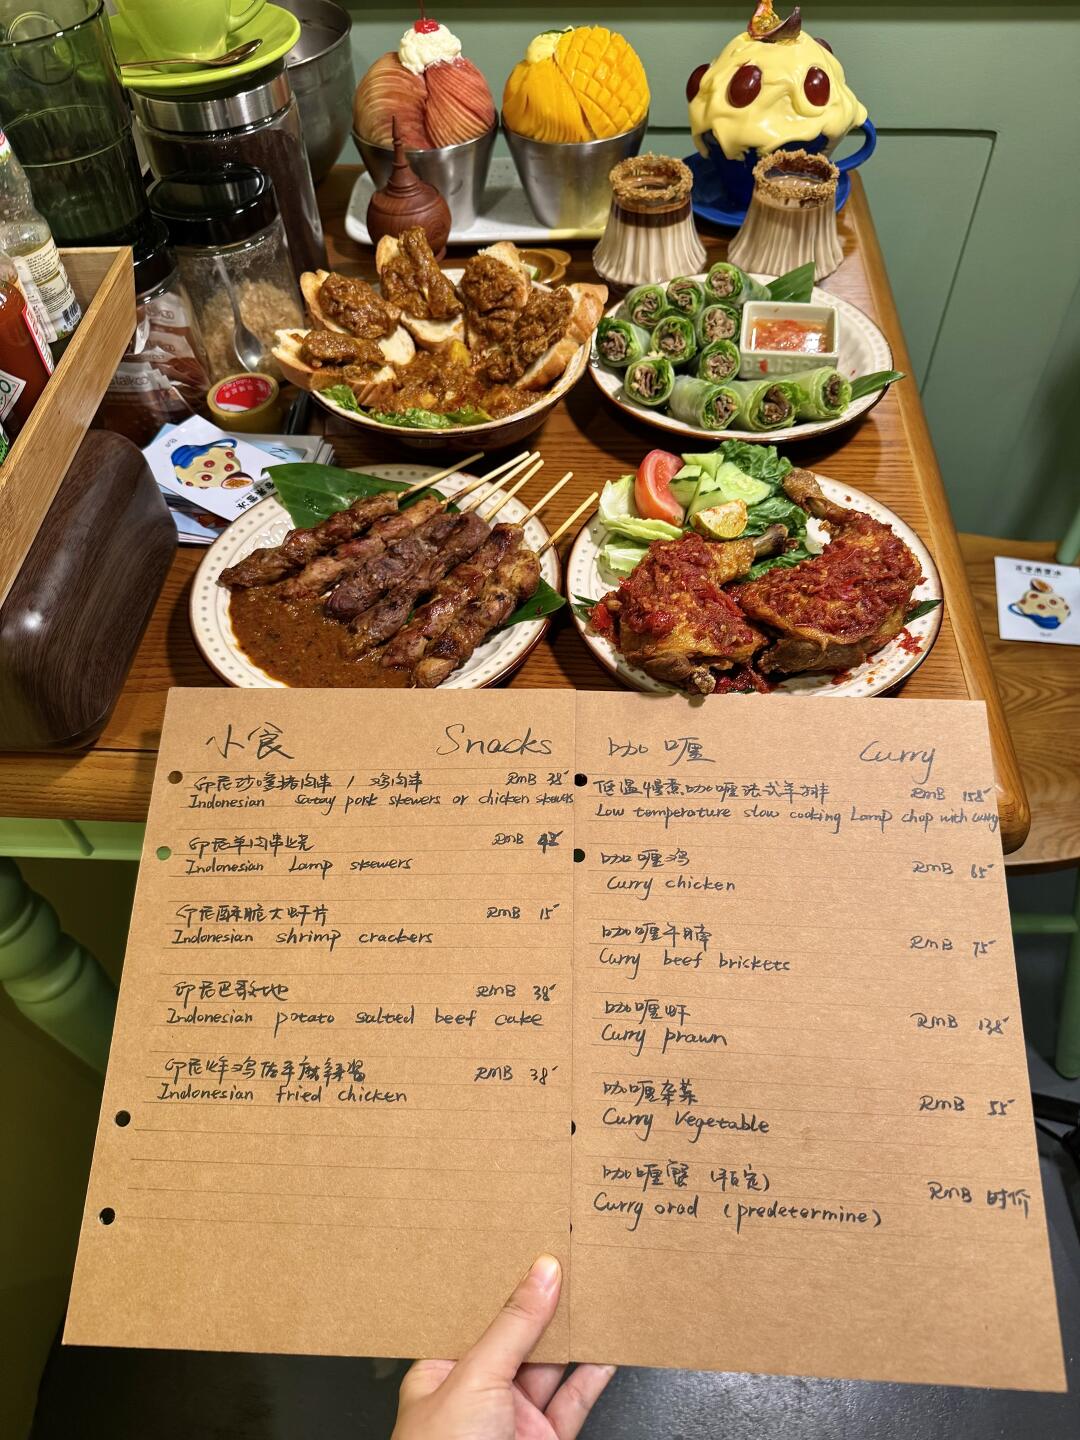 小食 Snacks
印尼沙嗲猪肉串 / 鸡肉串 RMB 38
Indonesian satay pork skewers or chicken skewers
印尼羊肉串烧 RMB 42
Indonesian Lamp skewers
印尼酥脆大虾片 RMB 15
Indonesian shrimp crackers
印尼巴哥地 RMB 38
Indonesian potato salted beef cake
印尼炸鸡佐手麻辣酱 RMB 38
Indonesian fried chicken
咖喱 Curry
低温慢煮咖喱法式羊排 RMB 158
Low temperature slow cooking Lamp chop with curry
咖喱鸡 RMB 65
Curry chicken
咖喱牛腩 RMB 75
Curry beef briskets
咖喱虾 RMB 138
Curry prawn
咖喱杂菜 RMB 55
Curry Vegetable
咖喱蟹 (预定) RMB 时价
Curry crad (predetermine)